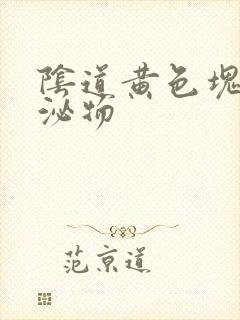 陰道黄色塊
泌物
范京道